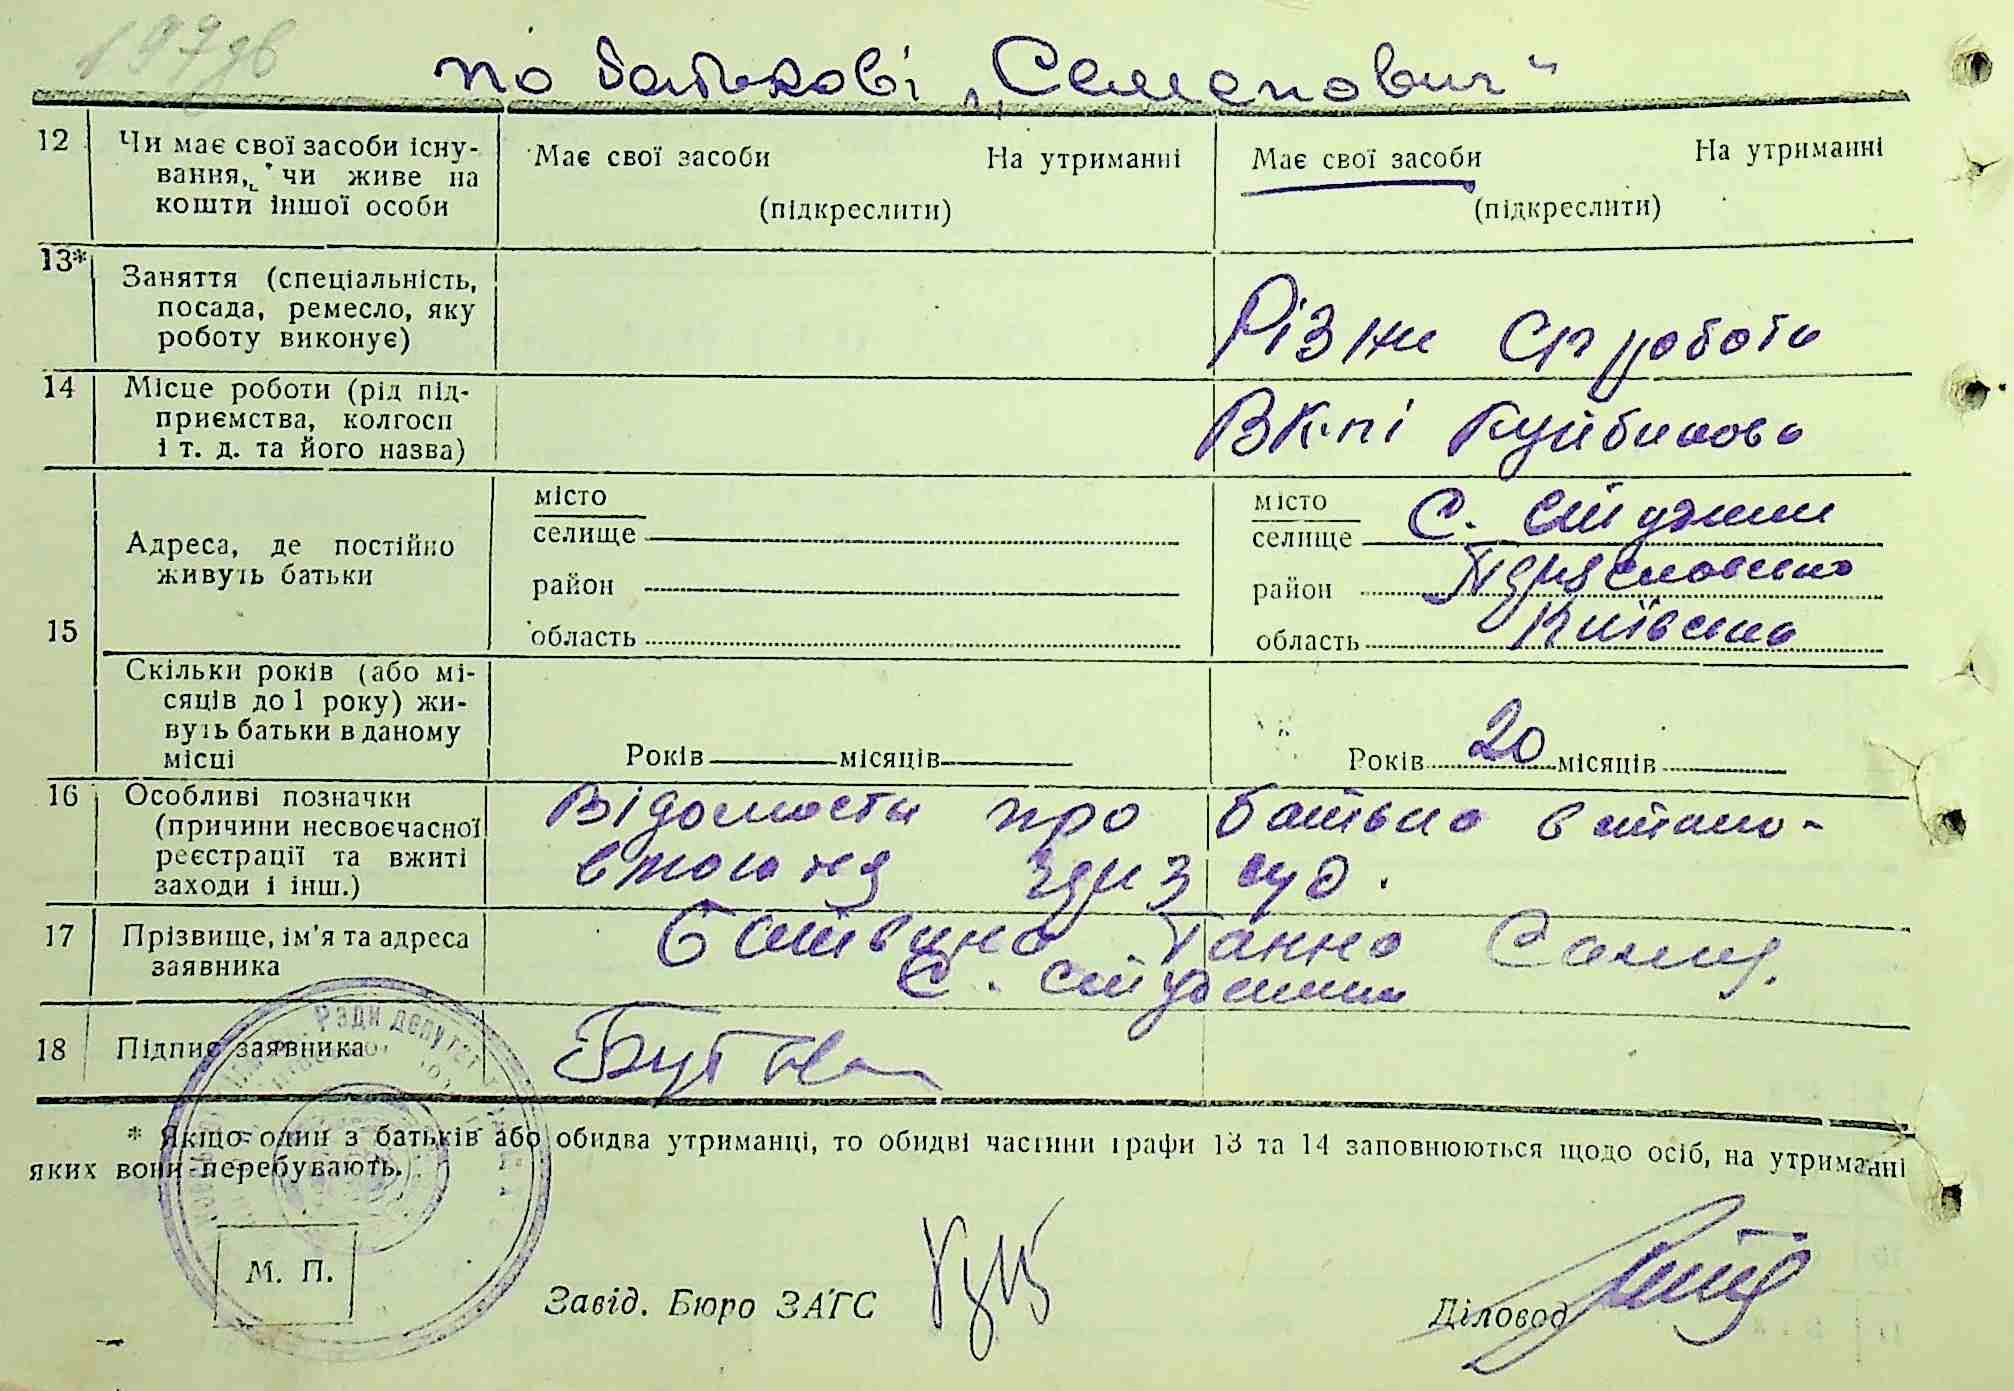 197 зв
по батькові „Семенович“
12
Чи має свої засоби існу-
вання, чи живе на
кошти іншої особи
Має свої засоби На утриманні
(підкреслити)
Має свої засоби На утриманні
(підкреслити)
13*
Заняття (спеціальність,
посада, ремесло, яку
роботу виконує)
Різни Сг робота
14
Місце роботи (рід під-
приємства, колгосп
і т. д. та його назва)
В К-пі Куйбишова
15
Адреса, де постійно
живуть батьки
місто
селище
район
область
місто
селище С. Студеники
район
область Київська
Скільки років (або мі-
сяців до 1 року) жи-
вуть батьки в даному
місці
Років місяців
Років 20 місяців
16
Особливі позначки
(причини несвоєчасної
реєстрації та вжиті
заходи і інш.)
Відомости про батька встано-
влення через суд.
17
Прізвище, ім’я та адреса
заявника
Ганна
С. Студеники
18
Підпис заявника
Ради депутат
* Якщо один з батьків або обидва утриманці, то обидві частини графи 13 та 14 заповнюються щодо осіб, на утриманні
яких вони перебувають.
М. П.
Завід. Бюро ЗАГС
Діловод